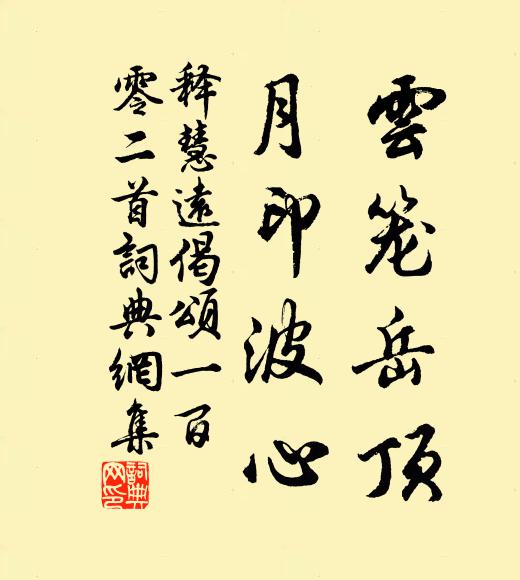 雲笼岳顶
月印波心
释慧遠偈頌一百
零二首詞典網集
詞典网印